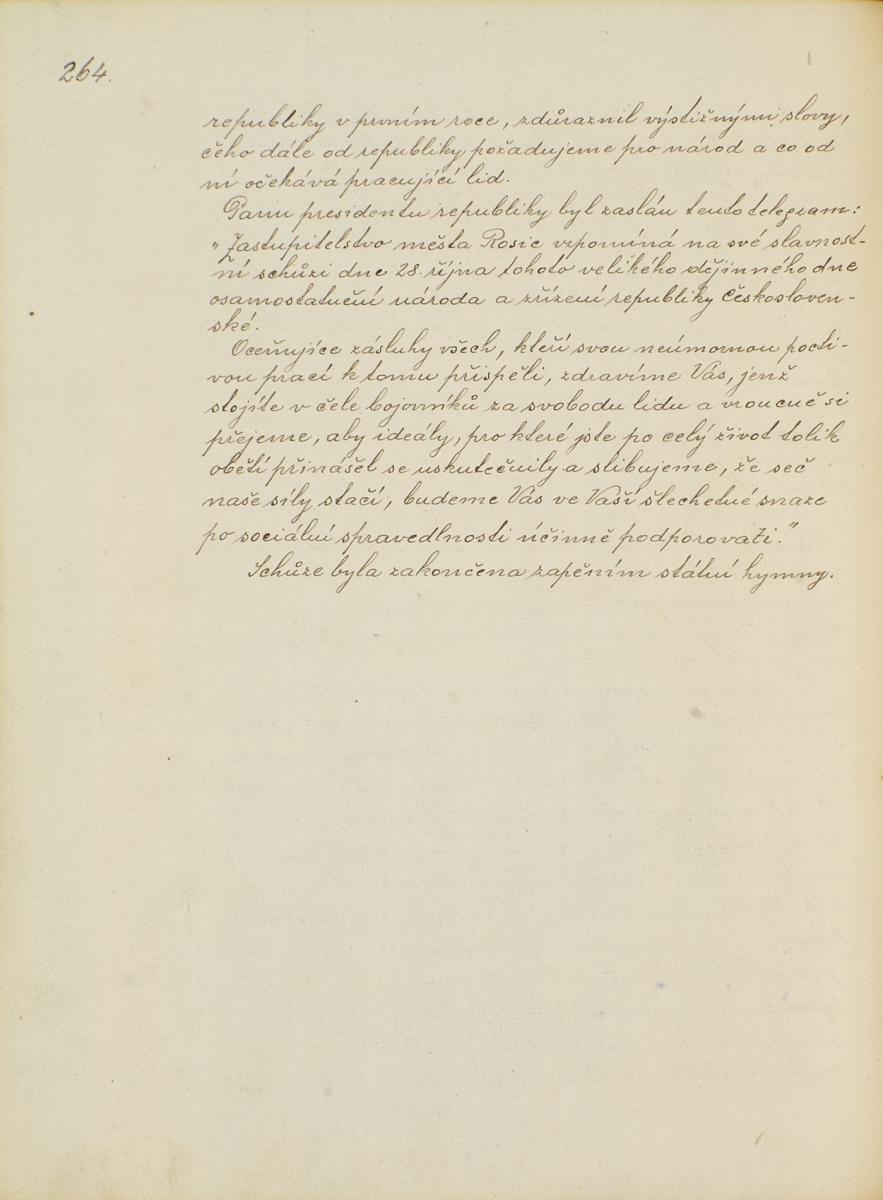 264.
republiky v prvním roce, zdůraznil výstižnými slovy,
čeho dále od republiky požadujeme pro národ a co od
ní očekává pracující lid.
Panu presidentu republiky byl zaslán tento telegram:
"Zastupitelstvo města Rosic vzpomíná na své slavnost-
ní schůzi dne 28. října tohoto velikého dějinného dne
osamostatnění národa a zřízení republiky českosloven-
ské.
Oceňujíce zásluhy všech, kteří svou neúmornou pocti-
vou prací k tomu přispěli, zdravíme Vás, jenž
stojíte v čele bojovníků za svobodu lidu a vroucně si
přejeme, aby ideály, pro které jste po celý život tolik
obětí přinášel se uskutečnily a slibujeme, že seč
naše síly stačí, budeme Vás ve Vaší šlechetné snaze
po sociální spravedlnosti účinně podporovati."
Schůze byla zakončena zapěním státní hymny.